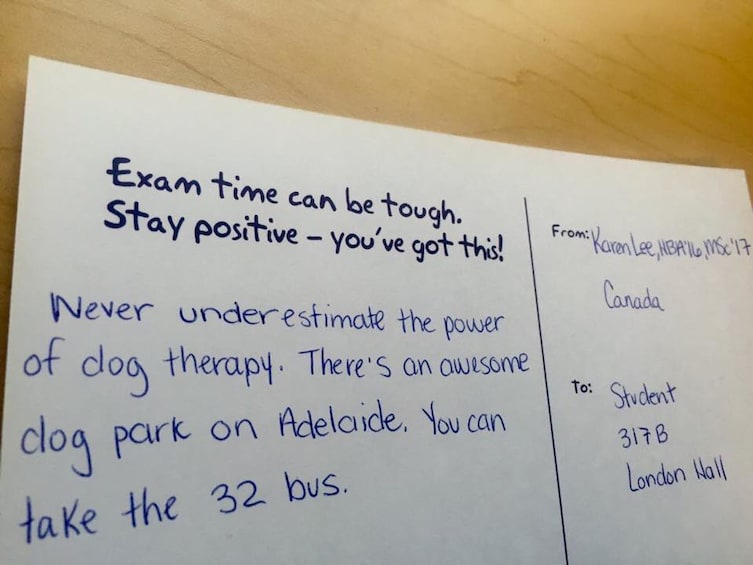 Exam time can be tough.
Stay positive – you've got this!
Never underestimate the power
of dog therapy. There's an awesome
dog park on Adelaide. You can
take the 32 bus.
From: Karen Lee, HBA'16, MSc'17
Canada
To: Student
317B
London Hall